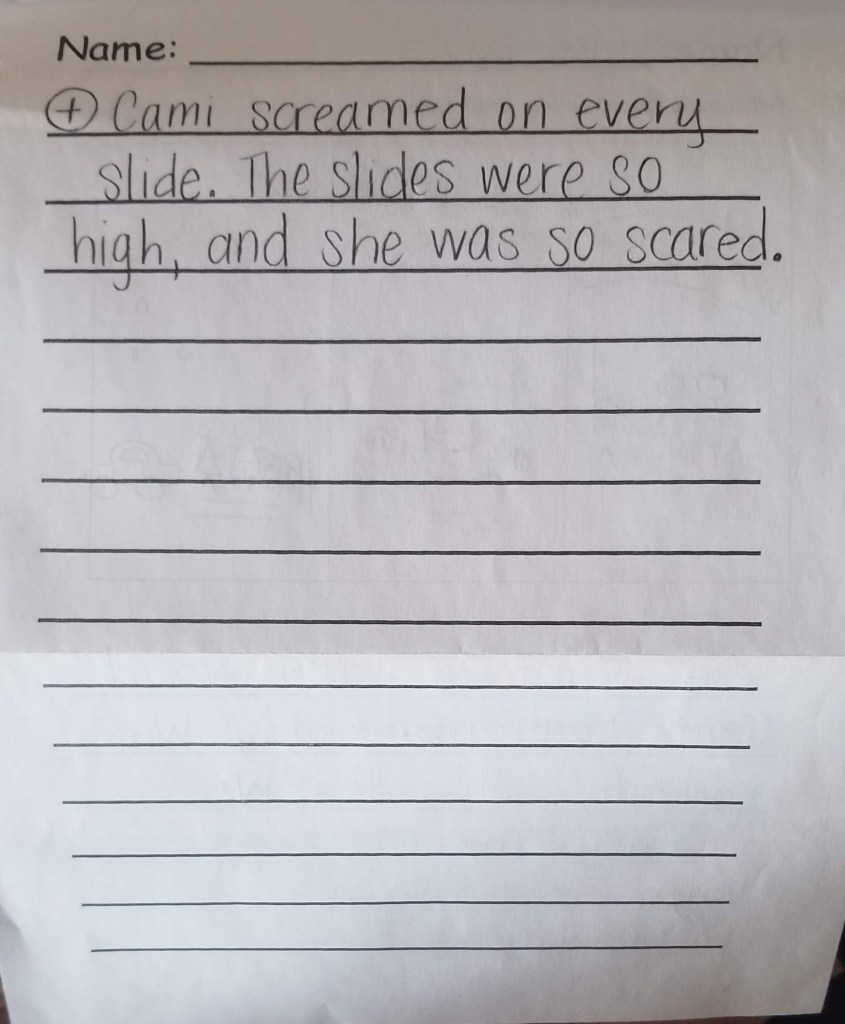 Name:
⊕ Cami screamed on every
slide. The slides were so
high, and she was so scared.